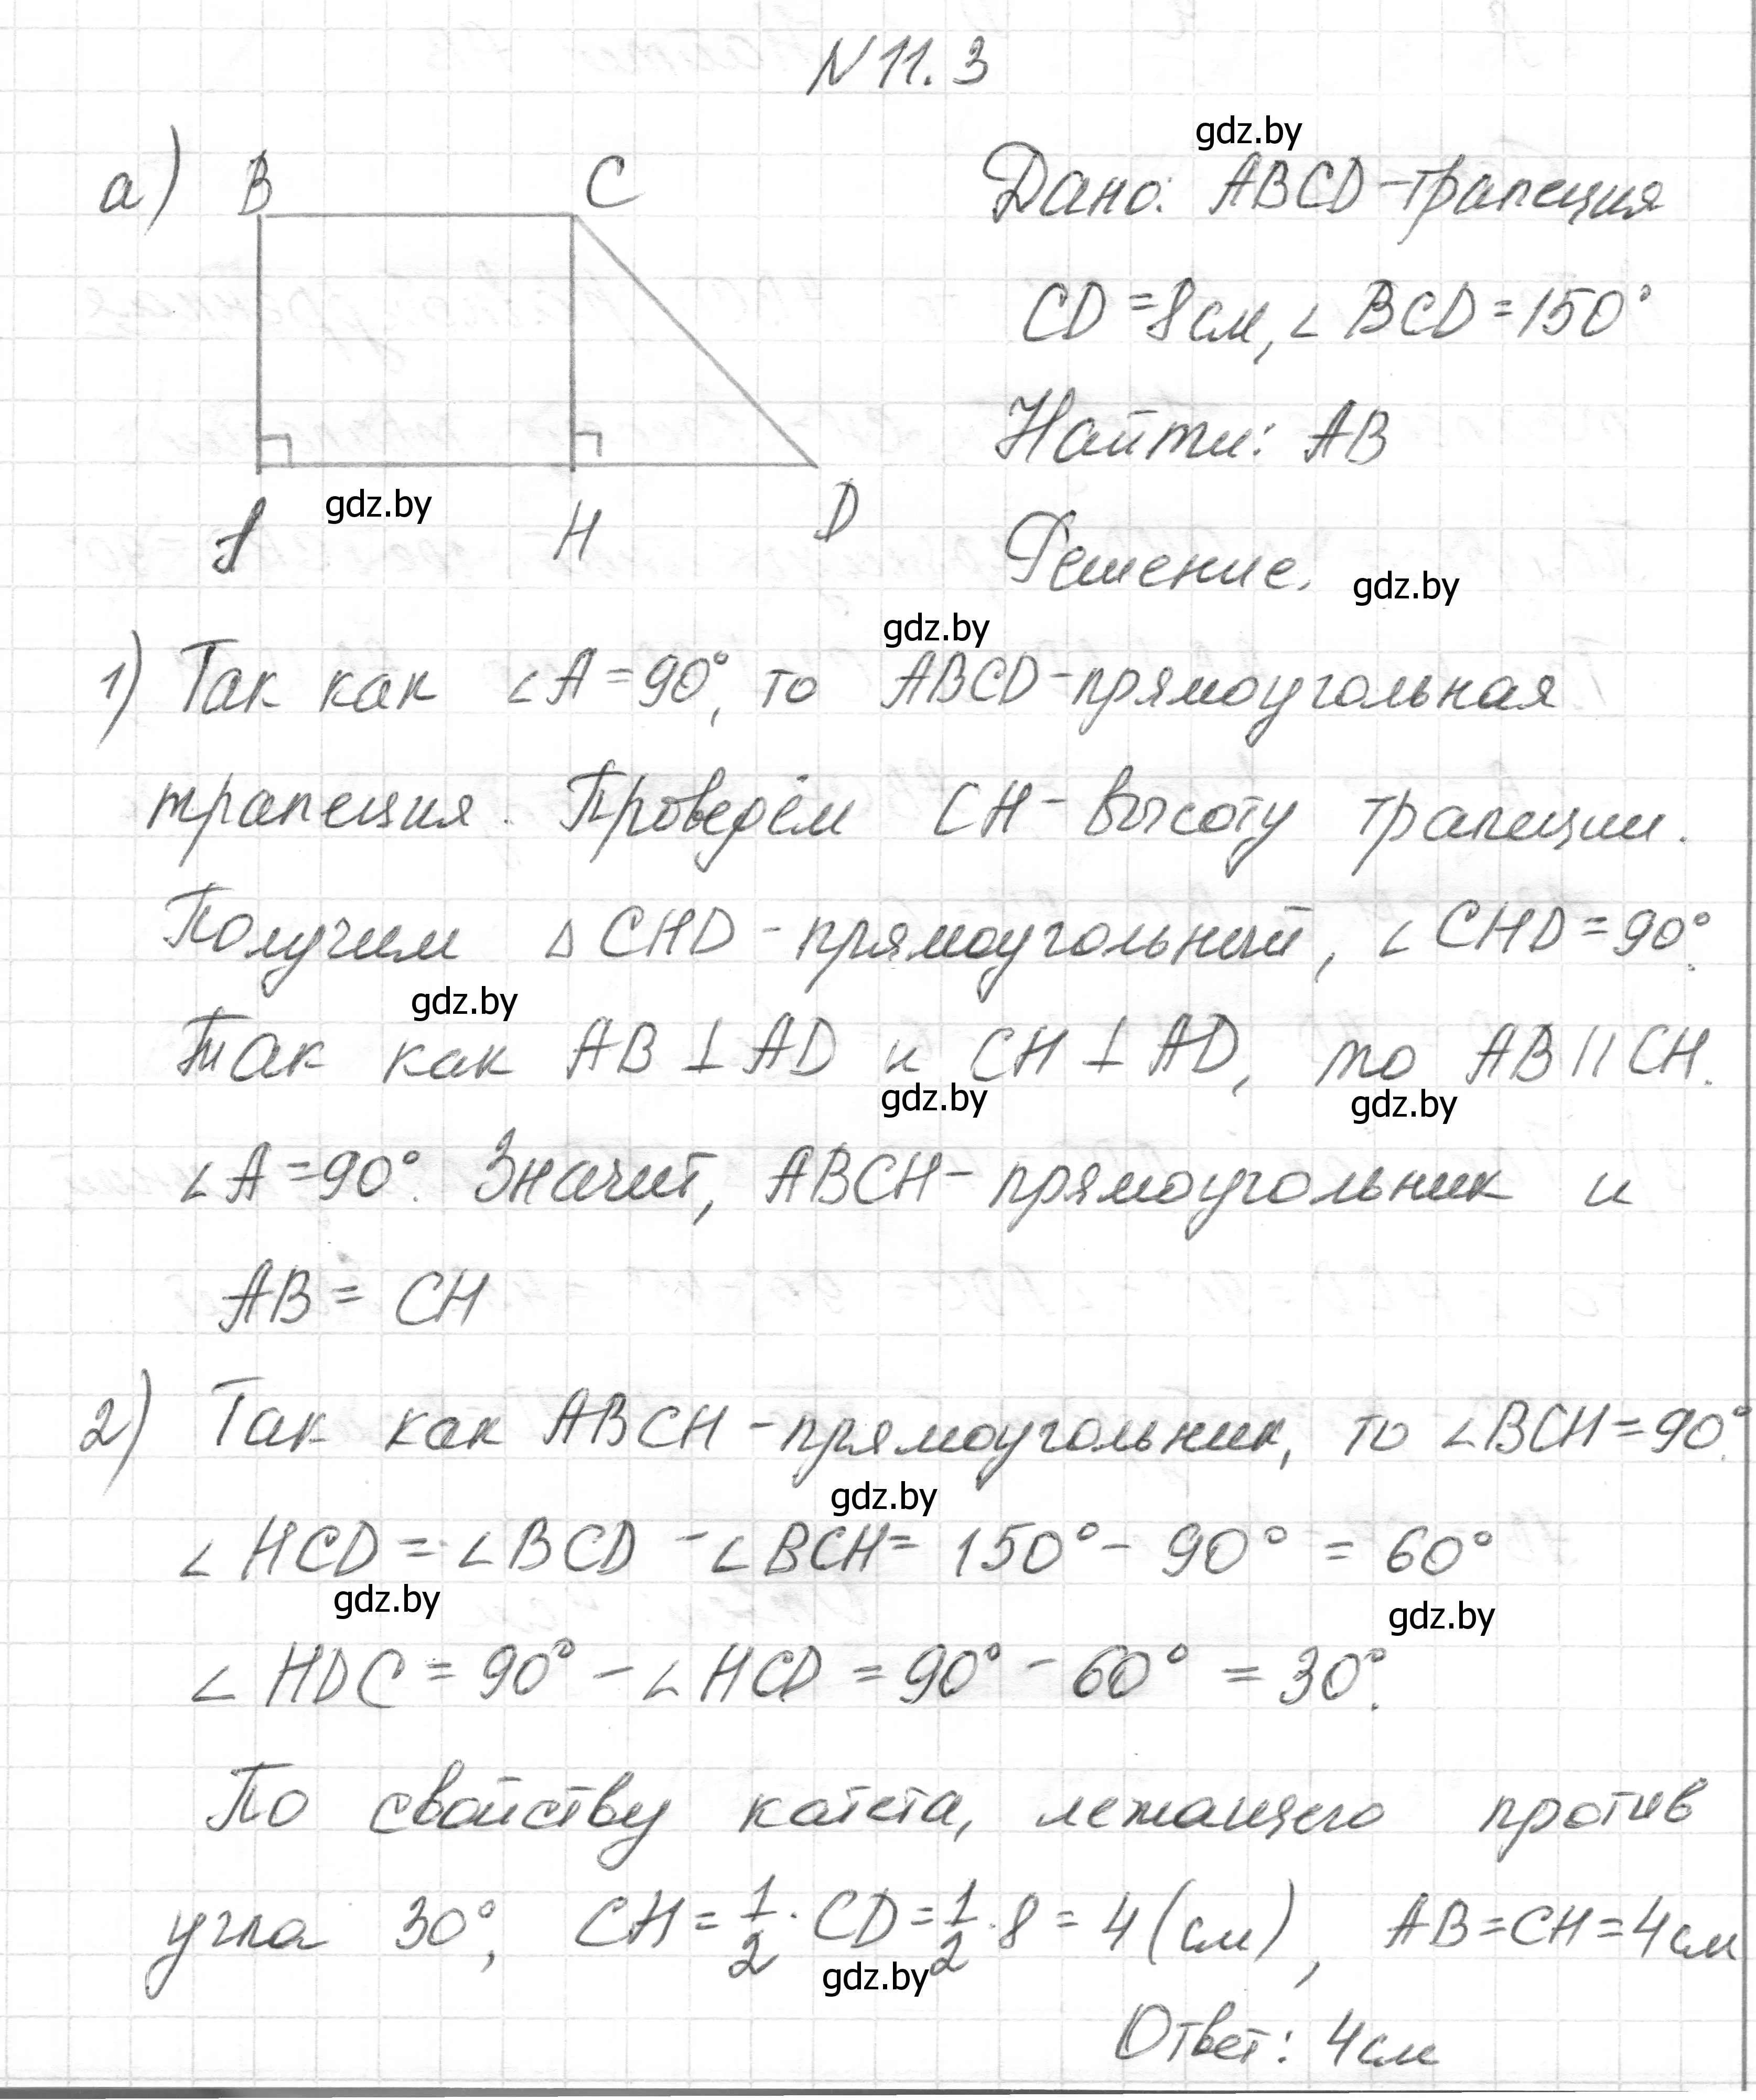 N 11.3
gdz.by
а) B C
Дано: ABCD-трапеция
CD = 8 см, ∠ BCD = 150°
Найти: AB
gdz.by
A H D
Решение.
gdz.by
gdz.by
1) Так как ∠A = 90°, то ABCD-прямоугольная
трапеция. Проведём CH - высоту трапеции.
Получим △ CHD - прямоугольный, ∠ CHD = 90°.
gdz.by
Так как AB ⊥ AD и CH ⊥ AD, то AB || CH.
gdz.by gdz.by
∠A = 90°. Значит, ABCH - прямоугольник и
AB = CH
2) Так как ABCH - прямоугольник, то ∠BCH = 90°.
gdz.by
∠ HCD = ∠ BCD - ∠ BCH = 150° - 90° = 60°
gdz.by gdz.by
∠ HDC = 90° - ∠ HCD = 90° - 60° = 30°.
По свойству катета, лежащего против
угла 30°, CH = 1/2 · CD = 1/2 · 8 = 4 (см), AB = CH = 4 см
gdz.by
Ответ: 4 см